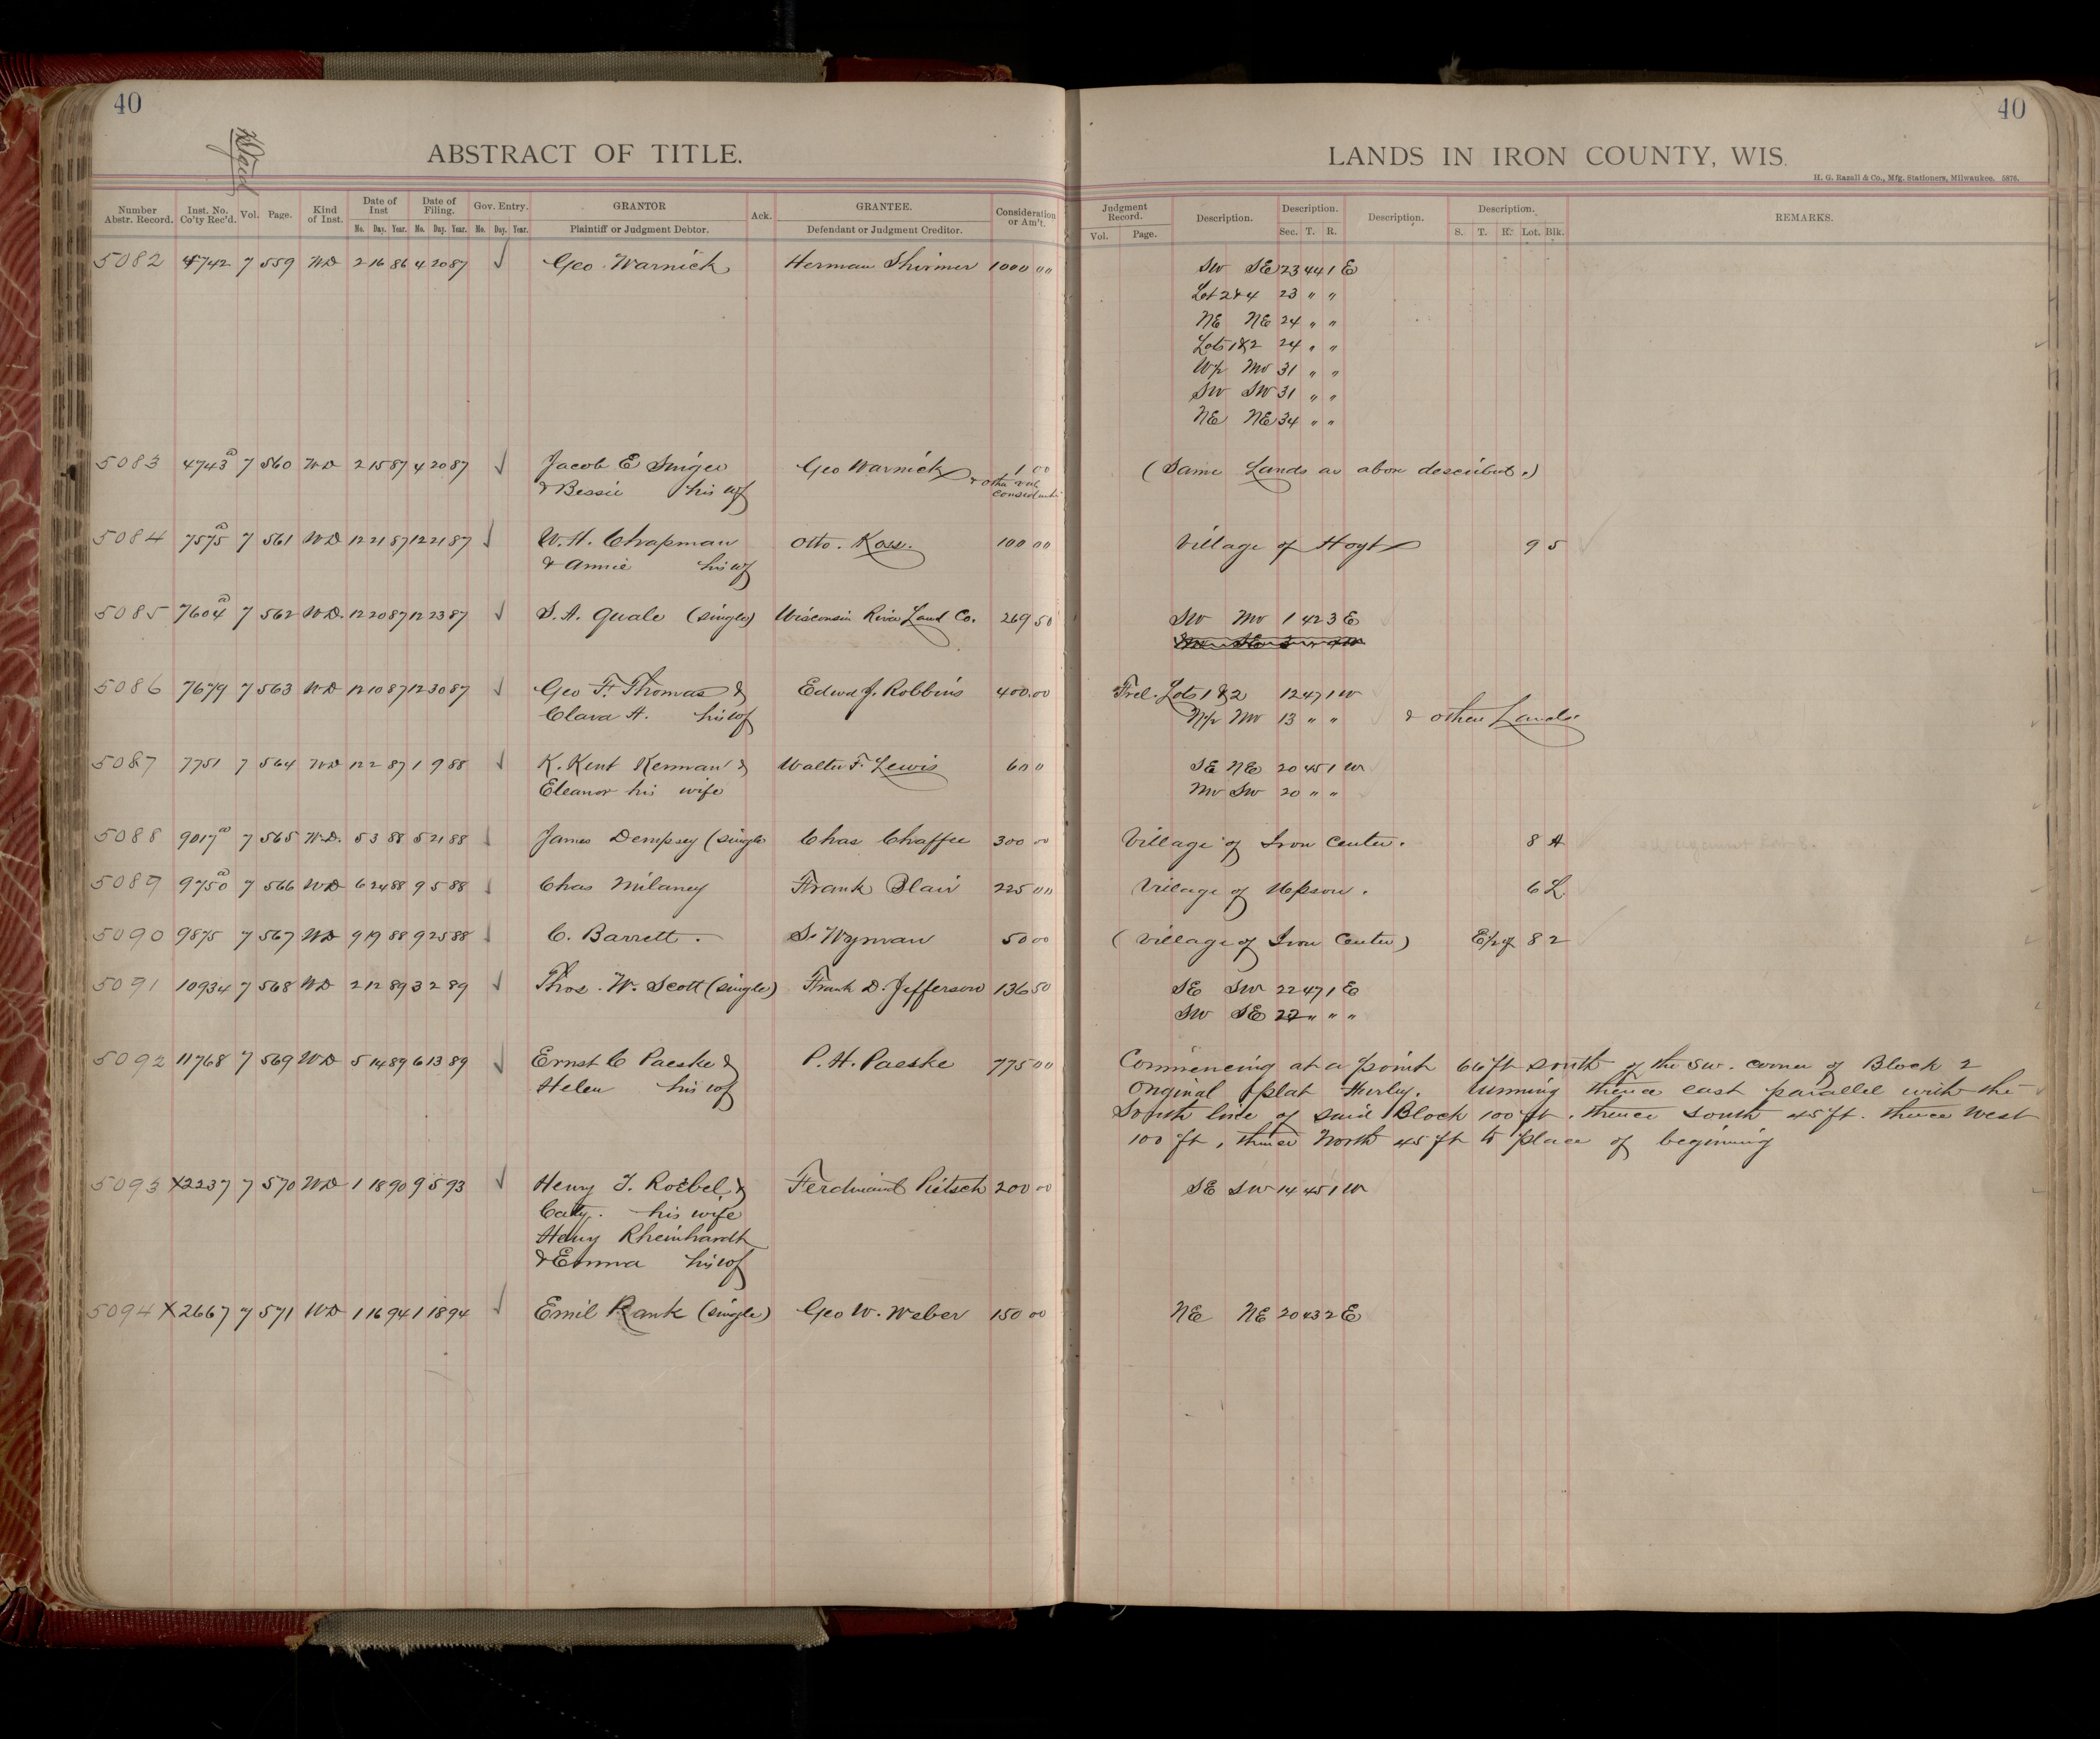 40
ABSTRACT OF TITLE.
Number Abstr. Record. Inst. No. Co'ty Rec'd. Vol. Page. Kind of Inst. Date of Inst Date of Filing. Gov. Entry. GRANTOR Ack. GRANTEE. Consideration or Am't.
Mo. Day. Year. Mo. Day. Year. Mo. Day. Year. Plaintiff or Judgment Debtor. Defendant or Judgment Creditor.
5082 4742 7 559 WD 2 16 86 4 20 87 ✓ Geo. Warnick Herman Shirmer 1000 00
5083 4743 a 7 560 WD 2 15 87 4 20 87 ✓ Jacob E Geo Warnick 1 00
& Bessie his wf & other val
5084 7575 a 7 561 WD 12 21 87 12 21 87 ✓ W. H. Chapman Otto. Ross. 100 00
& Annie his wf
5085 7604 a 7 562 WD. 12 20 87 12 23 87 ✓ S. A. Quale (single) Wisconsin River Land Co. 269 50
5086 7679 7 563 WD 12 10 87 12 30 87 ✓ Geo F. Thomas & Edwd J. Robbins 400.00
Clara H. his wf
5087 7751 7 564 WD 12 2 87 1 9 88 ✓ K. Kent Kennan & Walter F. Lewis 600
Eleanor his wife
5088 9017 a 7 565 W.D. 5 3 88 5 21 88 James Dempsey (single Chas Chaffee 300 00
5089 9750 a 7 566 WD 6 24 88 9 5 88 Chas Milaney Frank Blair 225 00
5090 9875 7 567 WD 9 19 88 9 25 88 C. Barrett. S. Wyman 50 00
5091 10934 7 568 WD 2 12 89 3 2 89 ✓ Thos. W. Scott (single) Frank D. Jefferson 136 50
5092 11768 7 569 WD 5 14 89 6 13 89 ✓ Ernst C Paeske & P. H. Paeske 775 00
Helen his wf
5093 X2237 7 570 WD 1 18 90 9 5 93 ✓ Henry J. Roebel & Ferdinand Pietsch 200 00
Caty. his wife
Henry Rheinhardt
& Emma his wf
5094 X2667 7 571 WD 1 16 94 1 18 94 ✓ Emil Rank (single) Geo W. Weber 150 00
40
LANDS IN IRON COUNTY, WIS.
H. G. Razall & Co., Mfg. Stationers, Milwaukee. 5876.
Judgment Record. Description. Description. Description. Description. REMARKS.
Vol. Page. Sec. T. R. S. T. R. Lot. Blk.
SW SE 23 44 1 E
Lot 2 & 4 23 " "
NE NE 24 " "
Lots 1 & 2 24 " "
W½ NW 31 " "
SW SW 31 " "
NE NE 34 " "
(Same Lands as above described.)
Village of Hoyt 9 5
SW NW 1 42 3 E
Frcl. Lots 1 & 2 12 47 1 W
N½ NW 13 " " & other Lands
SE NE 20 45 1 W
NW SW 20 " "
Village of Iron Center. 8 A
Village of Upson. 6 L
(Village of Iron Center) E½ of 8 2
SE SW 22 47 1 E
SW SE 22 " " "
Commencing at a point 66 ft south of the SW. corner of Block 2
Original plat Hurley. running thence east parallel with the
South line of said Block 100 ft. thence South 45 ft. thence West
100 ft, thence North 45 ft to place of beginning
SE SW 14 45 1 W
NE NE 20 43 2 E